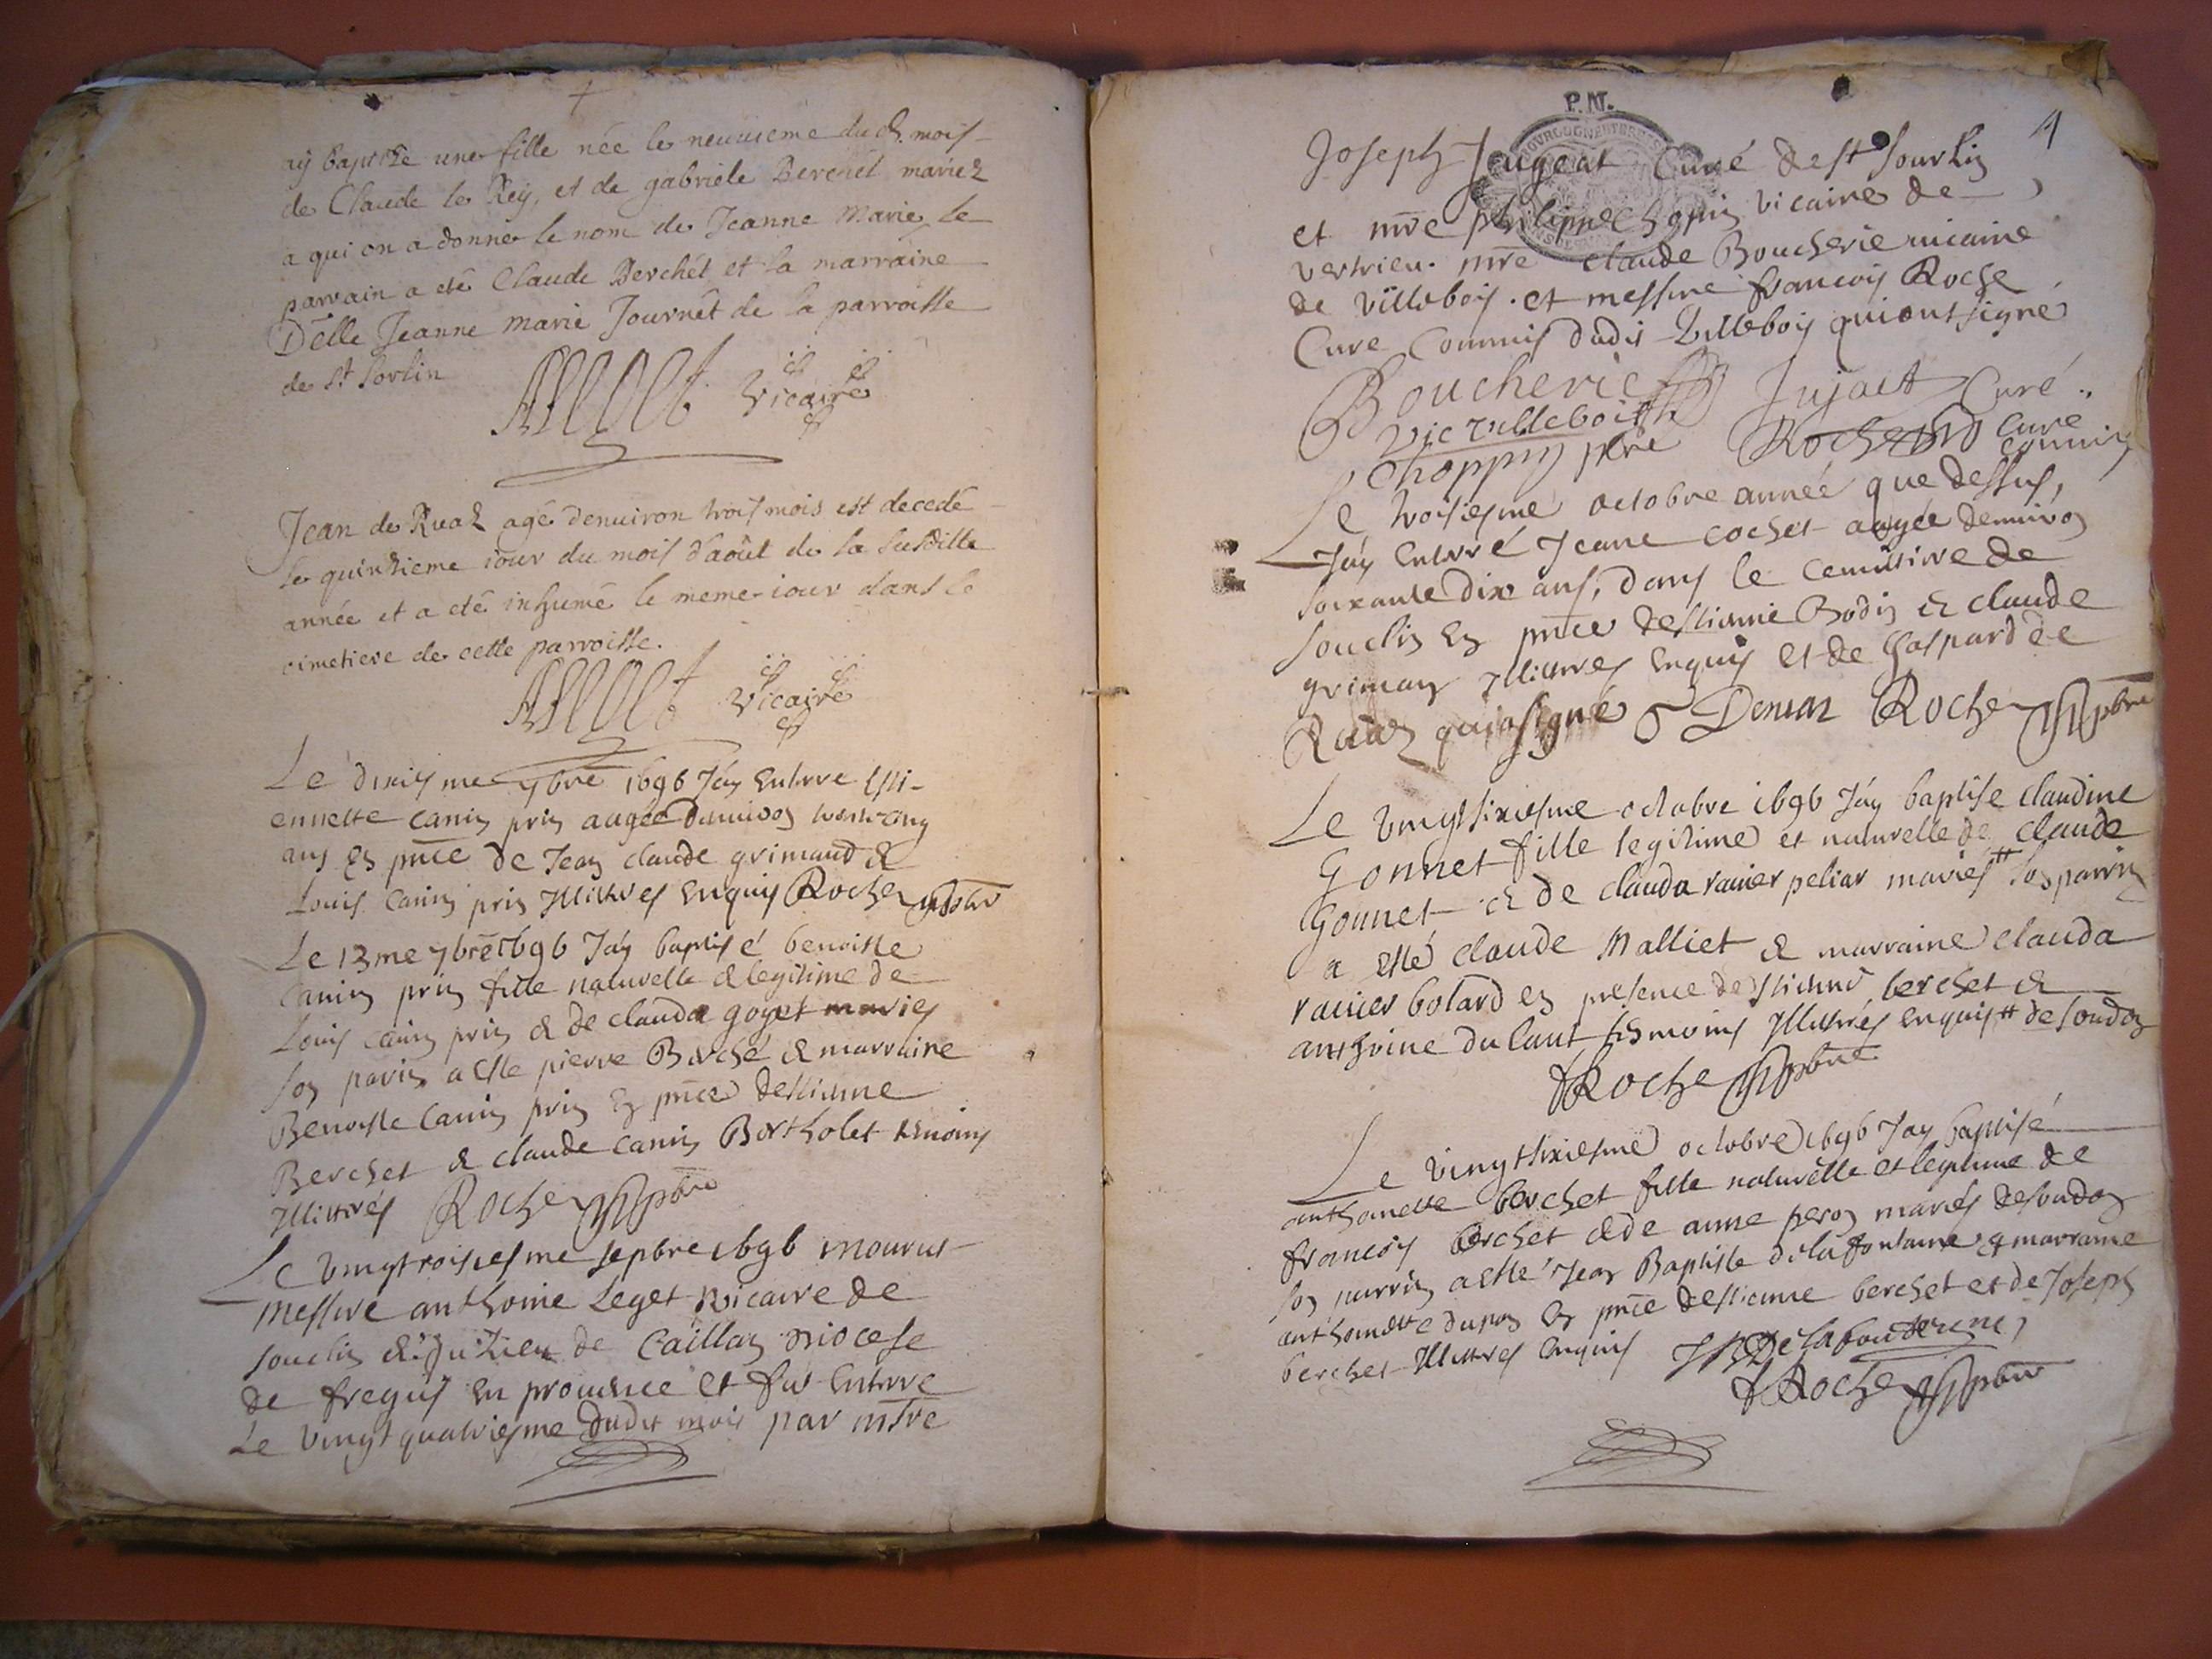 ay baptizé une fille née le neuuieme dud. mois
de Claude le Rey, et de gabriele Berchet mariez
a qui on a donné le nom de Jeanne Marie, le
parrain a eté Claude Berchét et la marraine
Delle Jeanne marie Journét de la parroisse
de St Sorlin
Vicaire
Jean de Ruaz agé denuiron trois mois est decedé
le quinzieme iour du mois d'août de la susditte
année et a eté inhumé le meme iour dans le
cimetiere de cette parroisse.
Vicaire
Le dixiesme 7bre 1696 Jay Enterre Esti-
ennette canin prin augée denuiron
ans en pnce de Jean claude grimaud &
Louis Canin prin Illitres Enquis Roche pbre
Le 13me 7bre 1696 Jay baptisé benoiste
Canin prin fille naturelle & legitime de
Louis canin prin & de clauda goyet maries
son parin a esté pierre Berché & marraine
Benoiste Canin prin En pnce destienne
Berchet & claude canin Bertholet temoins
Illitrés Roche pbre
Le vingtroisiesme sepbre 1696 mourut
Messire anthoine Leget vicaire de
souclin & du lieu de Caillan diocese
de fregus en prouence et fut Enterre
Le vingt quatriesme dudit mois par mre
4
P. NT.
Joseph Jugeat Curé de st sourlin
et mre philippe Chopin vicaire de
vertrieu. mre claude Boucherie uicaire
de villebois. et messire francois Roche
Cure Commis dudit villebois qui ont signé
Boucherie Jujact Curé
vic villebois
Choppin pbre Roche Cure
commis
Le troisiesme octobre année que dessus,
Jay Enterré Jeane cochet aagée denuiron
soixante dix ans, dans le cemitiere de
souclin En pnce destienne Bodin & claude
griman Illitres enquis et de Gaspard de
Ruaz qui a signé G Deruaz Roche pbre
Le vingtsixiesme octobre 1696 Jay baptise claudine
Gonnet fille legitime et naturelle de claude
Gonnet & de clauda rauier peliar mariés # son parrin
a esté claude Malliet & marraine clauda
rauier botard en presence destienne berchet &
anthoine du laut tesmoins Illitrés enquis # de soudon
Roche pbre
Le vingtsixiesme octobre 1696 Jay baptisé
anthoinette berchet fille naturelle et legitime de
francois berchet & de anne peron mariés de soudon
son parrin a esté Jean Baptiste de la fontaine & marraine
anthoinette dupon En pnce destienne berchet et de Joseph
berchet Illitres enquis JB De la fontaine
Roche pbre